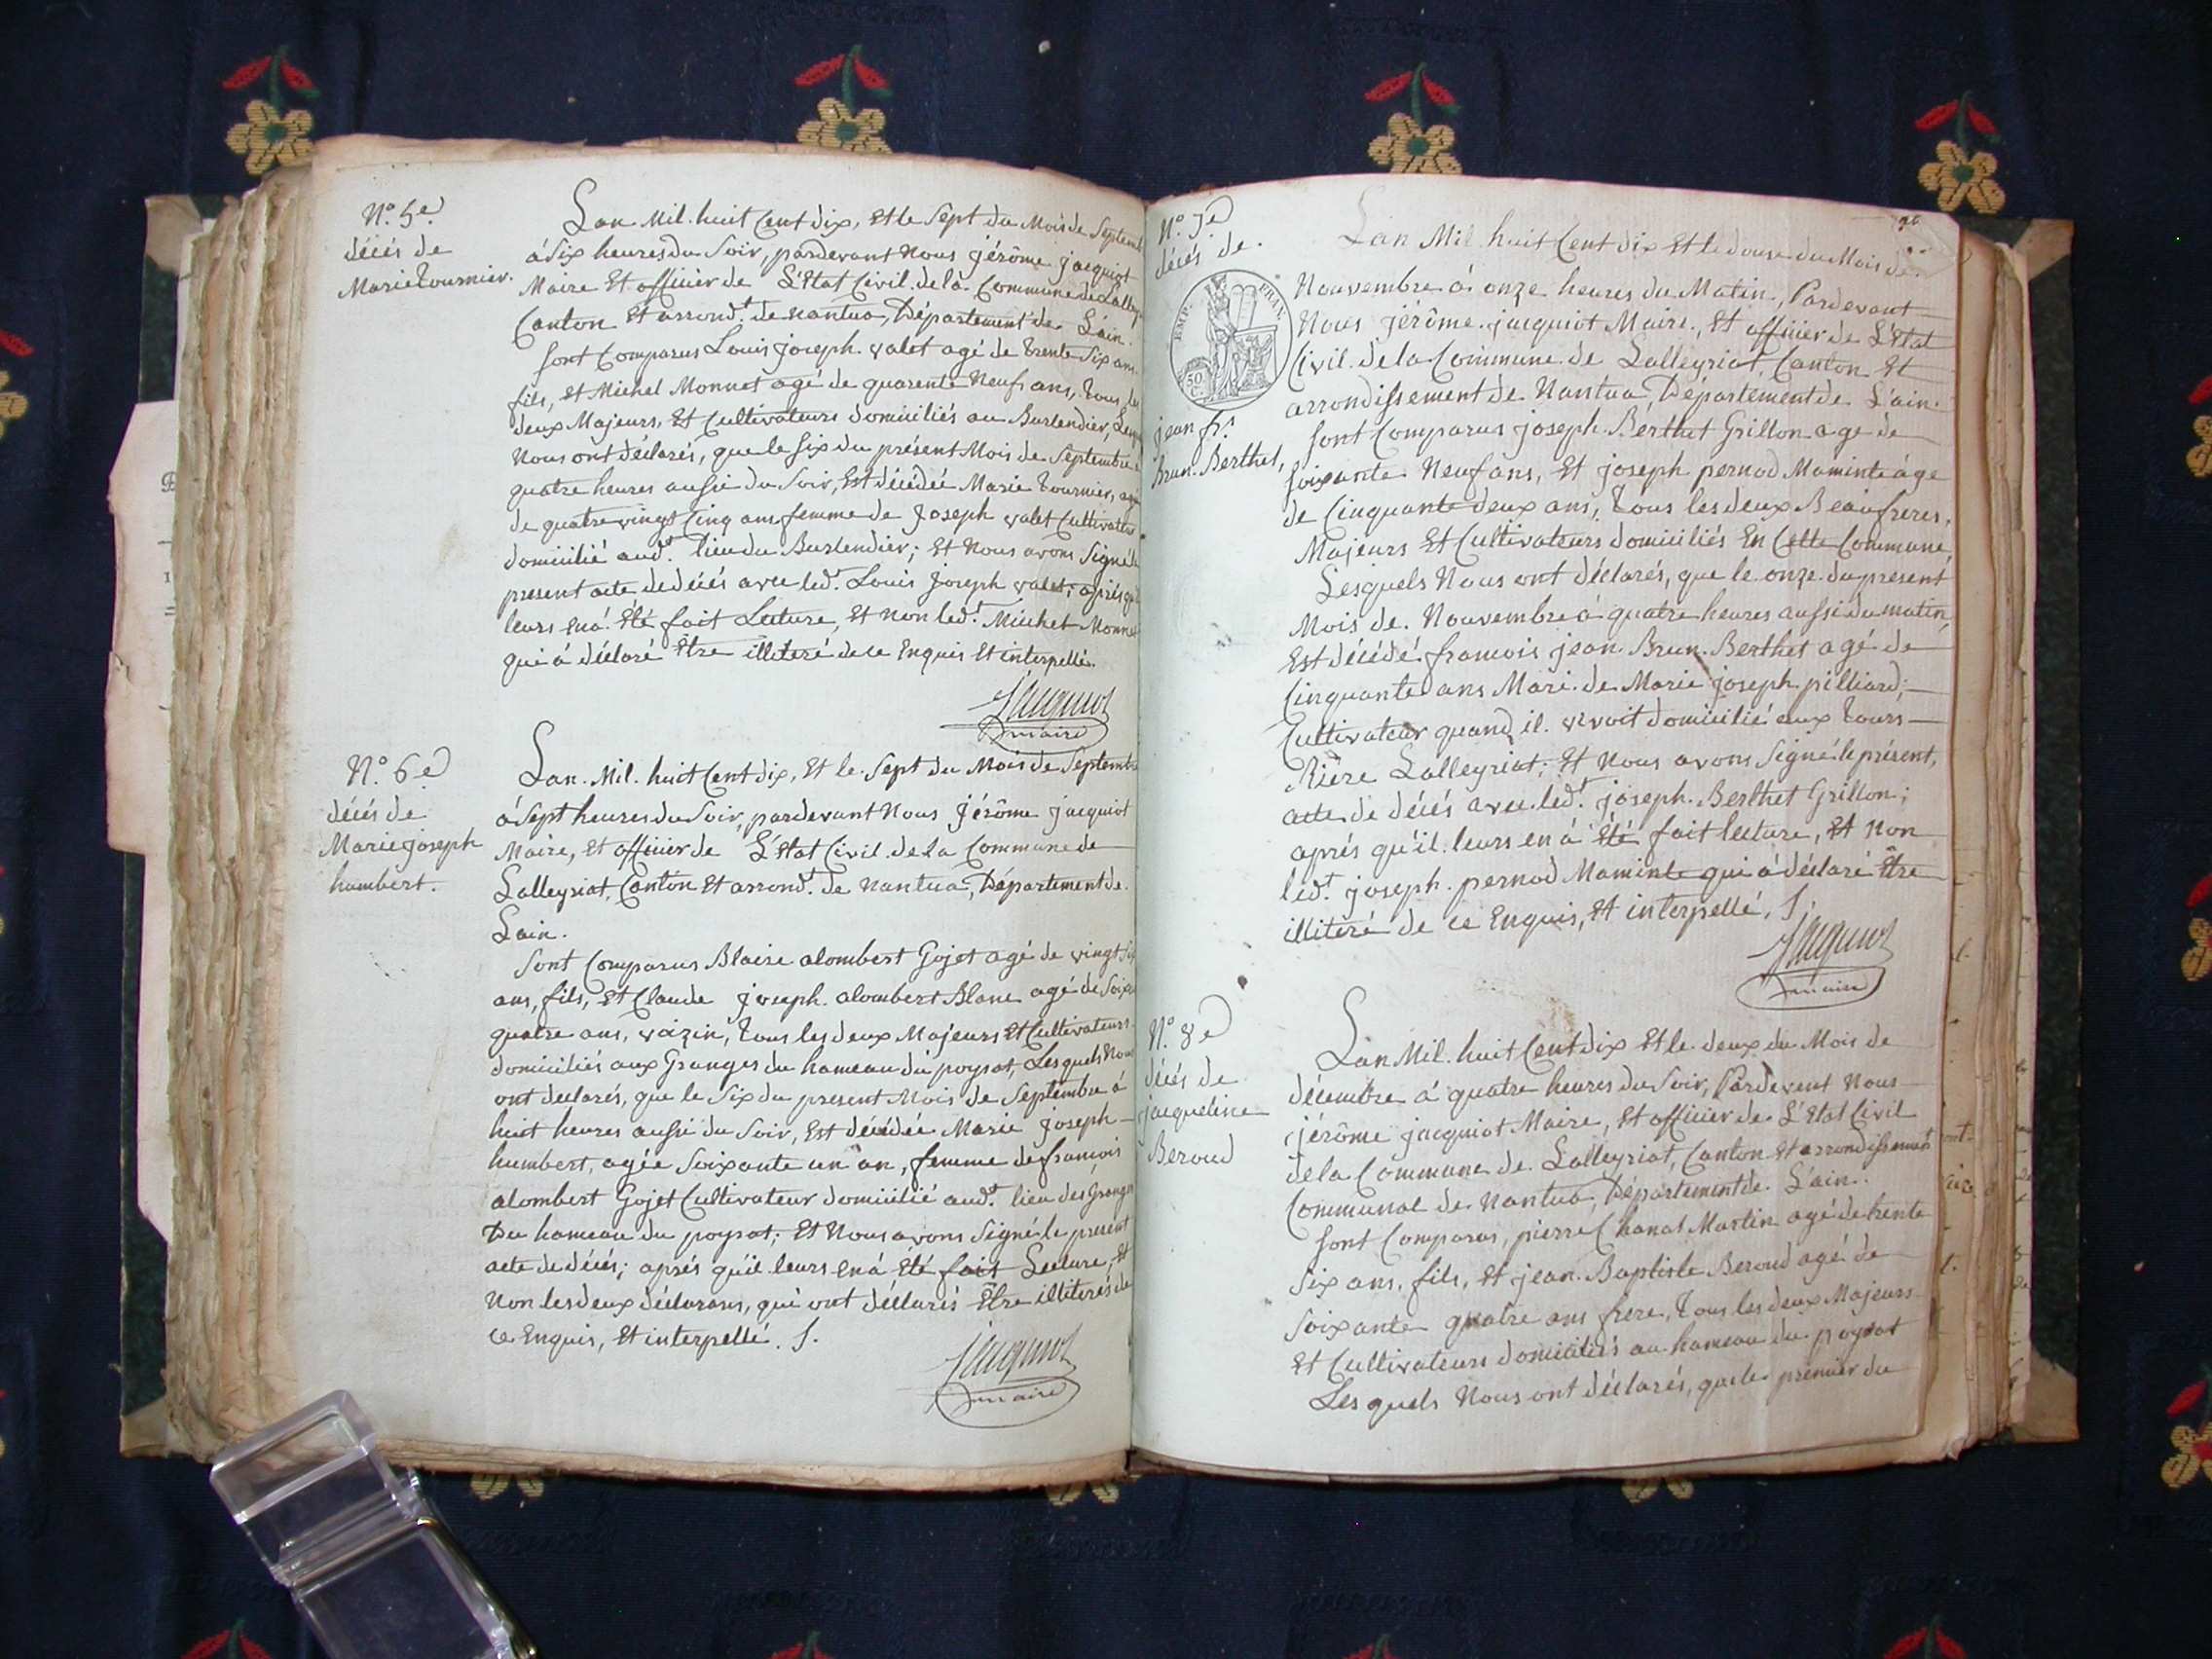 N.o 5.e
décés de
Marie Tournier.
Lan Mil. huit Cent dix, Et le Sept du Mois de Septemb
á Six heures du Soir, pardevant Nous jérôme jacquiot
Maire Et officier de L'Etat Civil. de la Commune de Lalley
Canton Et arrond.t de nantua, Département de L'ain.
Sont Comparus Louis joseph. valet agé de trente Six ans
fils, Et Michel Monnet agé de quarente Neuf ans, tous les
deux Majeurs, Et Cultivateurs domiciliés au Burlendier,
Nous ont déclarés, que le Six du présent Mois de Septembre
quatre heures aussi du Soir, Est décédée Marie Tournier,
de quatre vingt Cinq ans femme de Joseph valet Cultivateur
domicilié aud.t lieu du Burlendier; Et Nous avons Signé
present acte de décés avec led.t Louis Joseph valet; aprés
leurs en á Été fait Lecture, Et non led.t Michel Monnet
qui á déclaré Être illiteré de ce Enquis Et interpellé.
Jacquiot
maire
N.o 6.e
décés de
Marie joseph
humbert.
Lan. Mil. huit Cent dix, Et le Sept du Mois de Septembre
á Sept heures du Soir, pardevant Nous Jérôme jacquiot
Maire, Et officier de L'Etat Civil. de la Commune de
Lalleyriat, Canton Et arrond.t de nantua, Département de.
Lain.
Sont Comparus Blaise alombert Gojet agé de vingt Six
ans, fils, Et Claude joseph. alombert Blanc agé de Soix
quatre ans, voizin, tous les deux Majeurs Et Cultivateurs
domiciliés aux Granges du hameau du poysat, Lesquels Nous
ont declarés, que le Six du present Mois de Septembre á
huit heures aussi du Soir, Est décédée Marie joseph
humbert, agée Soixante un an, femme de françois
alombert Gojet Cultivateur domicilié aud.t lieu des Granges
Du hameau du poysat; Et Nous avons Signé le present
acte de décés; aprés qu'il leurs en á Été fait Lecture, Et
Non les deux déclarans, qui ont déclarés Être illiterés de
ce Enquis, Et interpellé. S.
Jacquiot
maire
N.o 7.e
décés de.
EMP. FRAN.
50
jean fr.s
Brun. Berthet,
Lan Mil. huit Cent dix Et le douse du Mois de.
Nouvembre á onze heures du Matin, Pardevant
Nous jérôme. jacquiot Maire, Et officier de L'Etat
Civil. de la Commune de Lalleyriat, Canton Et
arrondissement de Nantua, Département de L'ain.
Sont Comparus joseph. Berthet Grillon agé de
Soixante Neuf ans, Et joseph pernod Maminte ágé
de Cinquante deux ans, tous les deux Beaufreres,
Majeurs Et Cultivateurs domiciliés En Cette Commune,
Lesquels Nous ont déclarés, que le onze. du present
Mois de. Nouvembre á quatre heures aussi du matin
Est décédé. francois jean. Brun. Berthet agé de
Cinquante ans Mari. de Marie joseph. pilliard;
Cultivateur quand il. vivoit domicilié aux tours
Riére Lalleyriat; Et nous avons Signé le présent,
acte de décés avec led.t joseph. Berthet Grillon;
aprés qu'il. leurs en á Été fait lecture, Et Non
led.t joseph. pernod Maminte qui á déclaré Être
illiteré de ce Enquis, Et interpellé, S.
Jacquiot
maire
N.o 8.e
décés de
jacqueline
Beroud
Lan Mil. huit Cent dix Et le. deux du Mois de
décembre á quatre heures du Soir, Pardevent Nous
jérôme jacquiot Maire, Et officier de. L'Etat Civil
de la Commune de. Lalleyriat, Canton Et arrondissement
Communal de Nantua, Département de. L'ain.
Sont Comparus, pierre Chanal Martin agé de trente
Six ans, fils, Et jean. Baptiste Beroud agé de
Soixante quatre ans frere, tous les deux Majeurs
Et Cultivateurs domiciliés au hameau du poysat
Les quels Nous ont déclarés, que le. premier du